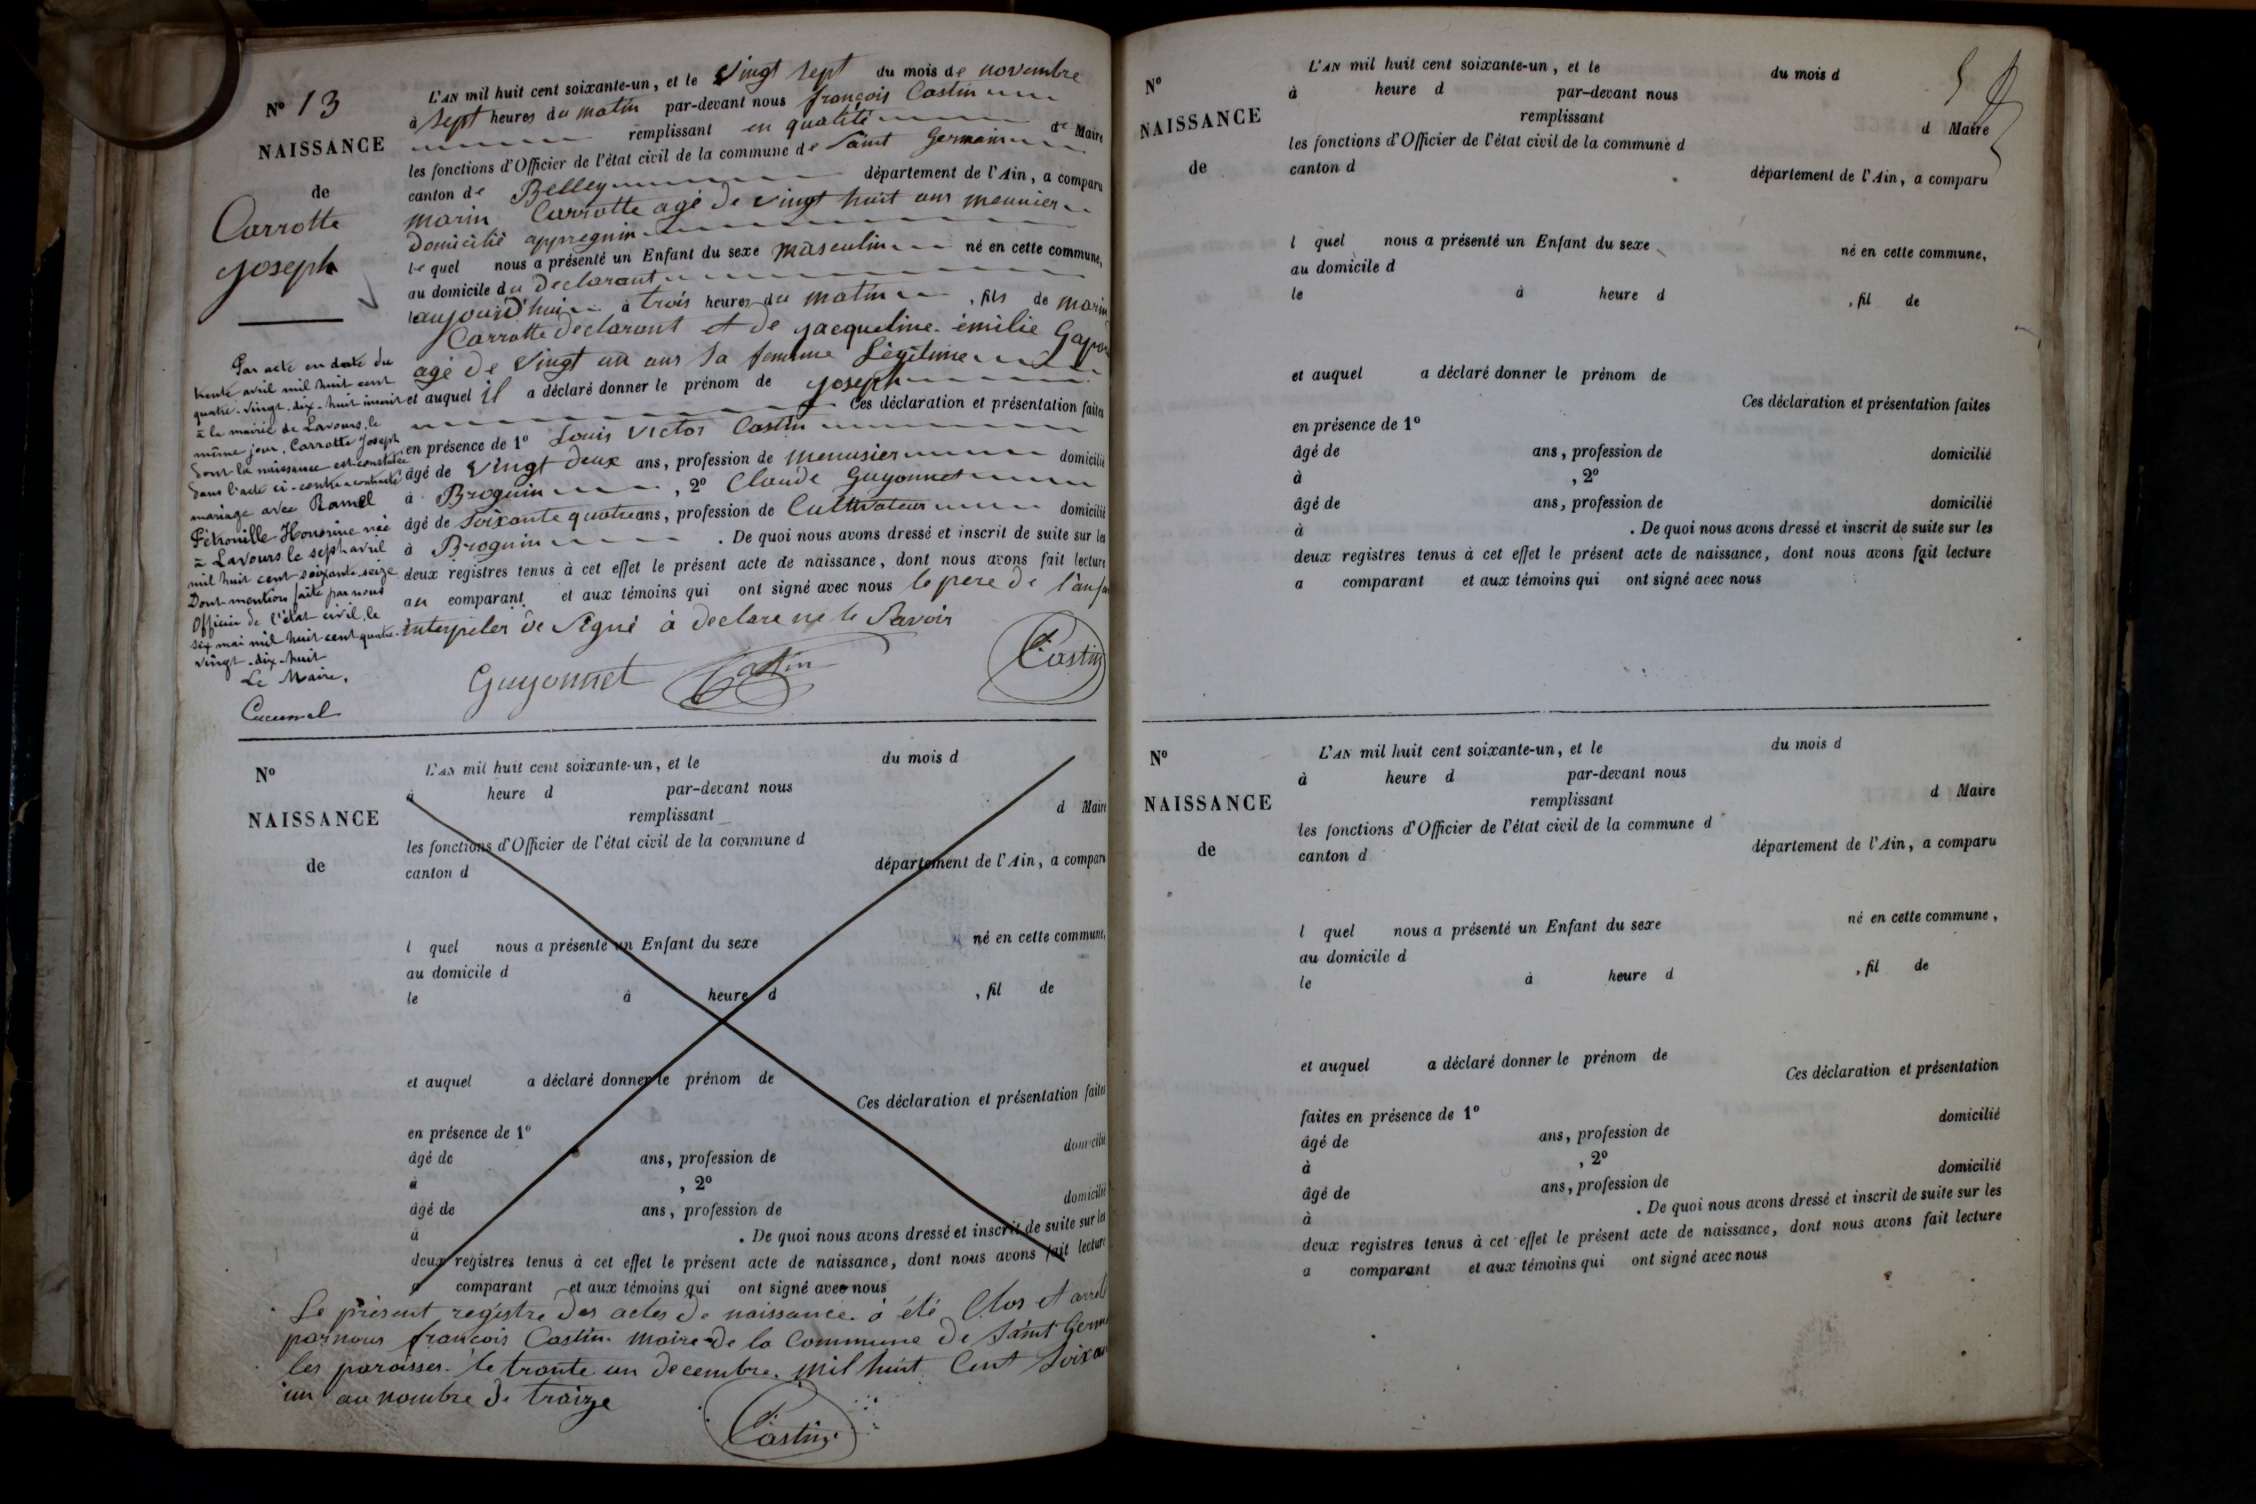 N° 13
NAISSANCE
de
Carrotte
Joseph
L'AN mil huit cent soixante-un, et le vingt sept du mois de novembre
à sept heures du matin par-devant nous françois Castin
remplissant en qualité de Maire
les fonctions d'Officier de l'état civil de la commune de Saint Germain
canton de Belley département de l'Ain, a comparu
marin Carrotte agé de vingt huit ans meunier
domicilié appregnin
le quel nous a présenté un Enfant du sexe masculin né en cette commune,
au domicile du declarant
aujourd'hui à trois heures du matin, fils de marin
Carrotte declarant et de jacqueline émilie
agé de vingt un ans sa femme Légitime
et auquel il a déclaré donner le prénom de joseph
Ces déclaration et présentation faites
en présence de 1° Louis Victor Castin
âgé de vingt deux ans, profession de menusier domicilié
à Brognin, 2° Claude Guyonnet
âgé de soixante quatre ans, profession de Cultivateur domicilié
à Brognin. De quoi nous avons dressé et inscrit de suite sur les
deux registres tenus à cet effet le présent acte de naissance, dont nous avons fait lecture
au comparant et aux témoins qui ont signé avec nous le pere de
interpeler de signé à declare ne le Savoir
Guyonnet Castin Castin
Par acte en date du
trente avril mil huit cent
quatre-vingt-dix-huit inscrit
à la mairie de Lavours, le
même jour, Carrotte Joseph
dont la naissance est constatée
dans l'acte ci-contre a contracté
mariage avec Ramel
Pétronille Honorine née
à Lavours le sept avril
mil huit cent soixante-seize
Dont mention faite par nous
Officier de l'état civil, le
six mai mil huit cent quatre-
vingt-dix-huit
Le Maire,
N°
NAISSANCE
de
L'AN mil huit cent soixante-un, et le du mois d
à heure d par-devant nous
remplissant d Maire
les fonctions d'Officier de l'état civil de la commune d
canton d département de l'Ain, a comparu
l quel nous a présenté un Enfant du sexe né en cette commune,
au domicile d
le à heure d , fil de
et auquel a déclaré donner le prénom de
Ces déclaration et présentation faites
en présence de 1°
âgé de ans, profession de domicilié
à , 2°
âgé de ans, profession de domicilié
à . De quoi nous avons dressé et inscrit de suite sur les
deux registres tenus à cet effet le présent acte de naissance, dont nous avons fait lecture
a comparant et aux témoins qui ont signé avec nous
Le présent registre des actes de naissance à été Clos et
par nous françois Castin maire de la Commune de Saint
les paroisses le trante un decembre mil huit Cent
un au nombre de traize
Castin
5
N°
NAISSANCE
de
L'AN mil huit cent soixante-un, et le du mois d
à heure d par-devant nous
remplissant d Maire
les fonctions d'Officier de l'état civil de la commune d
canton d département de l'Ain, a comparu
l quel nous a présenté un Enfant du sexe né en cette commune,
au domicile d
le à heure d , fil de
et auquel a déclaré donner le prénom de
Ces déclaration et présentation faites
en présence de 1°
âgé de ans, profession de domicilié
à , 2°
âgé de ans, profession de domicilié
à . De quoi nous avons dressé et inscrit de suite sur les
deux registres tenus à cet effet le présent acte de naissance, dont nous avons fait lecture
a comparant et aux témoins qui ont signé avec nous
N°
NAISSANCE
de
L'AN mil huit cent soixante-un, et le du mois d
à heure d par-devant nous
remplissant d Maire
les fonctions d'Officier de l'état civil de la commune d
canton d département de l'Ain, a comparu
l quel nous a présenté un Enfant du sexe né en cette commune,
au domicile d
le à heure d , fil de
et auquel a déclaré donner le prénom de
Ces déclaration et présentation
faites en présence de 1°
âgé de ans, profession de domicilié
à , 2°
âgé de ans, profession de domicilié
à . De quoi nous avons dressé et inscrit de suite sur les
deux registres tenus à cet effet le présent acte de naissance, dont nous avons fait lecture
a comparant et aux témoins qui ont signé avec nous